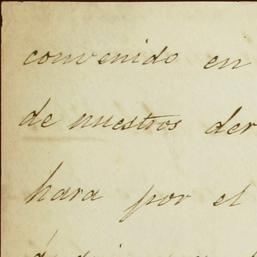 convenido en
de nuestros der
hara por el